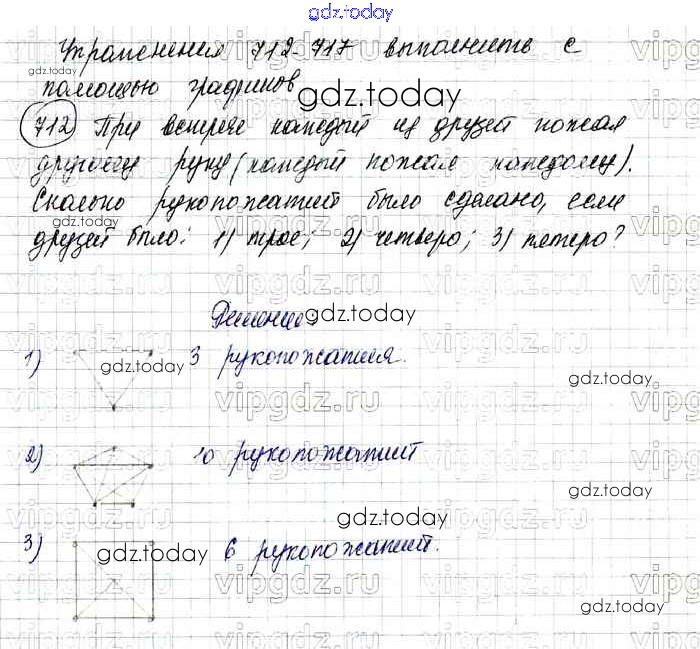 gdz.today
Упражнения 712-717 выполнить с
gdz.today
помощью графиков
gdz.today
712 При встрече каждый из друзей пожал
другому руку (каждый пожал каждому).
Сколько рукопожатий было сделано, если
gdz.today
друзей было: 1) трое; 2) четверо; 3) пятеро?
Решение:
gdz.today
1) gdz.today 3 рукопожатия.
gdz.today
2) 10 рукопожатий
gdz.today
gdz.today
3) gdz.today 6 рукопожатий.
gdz.today
vipgdz.ru